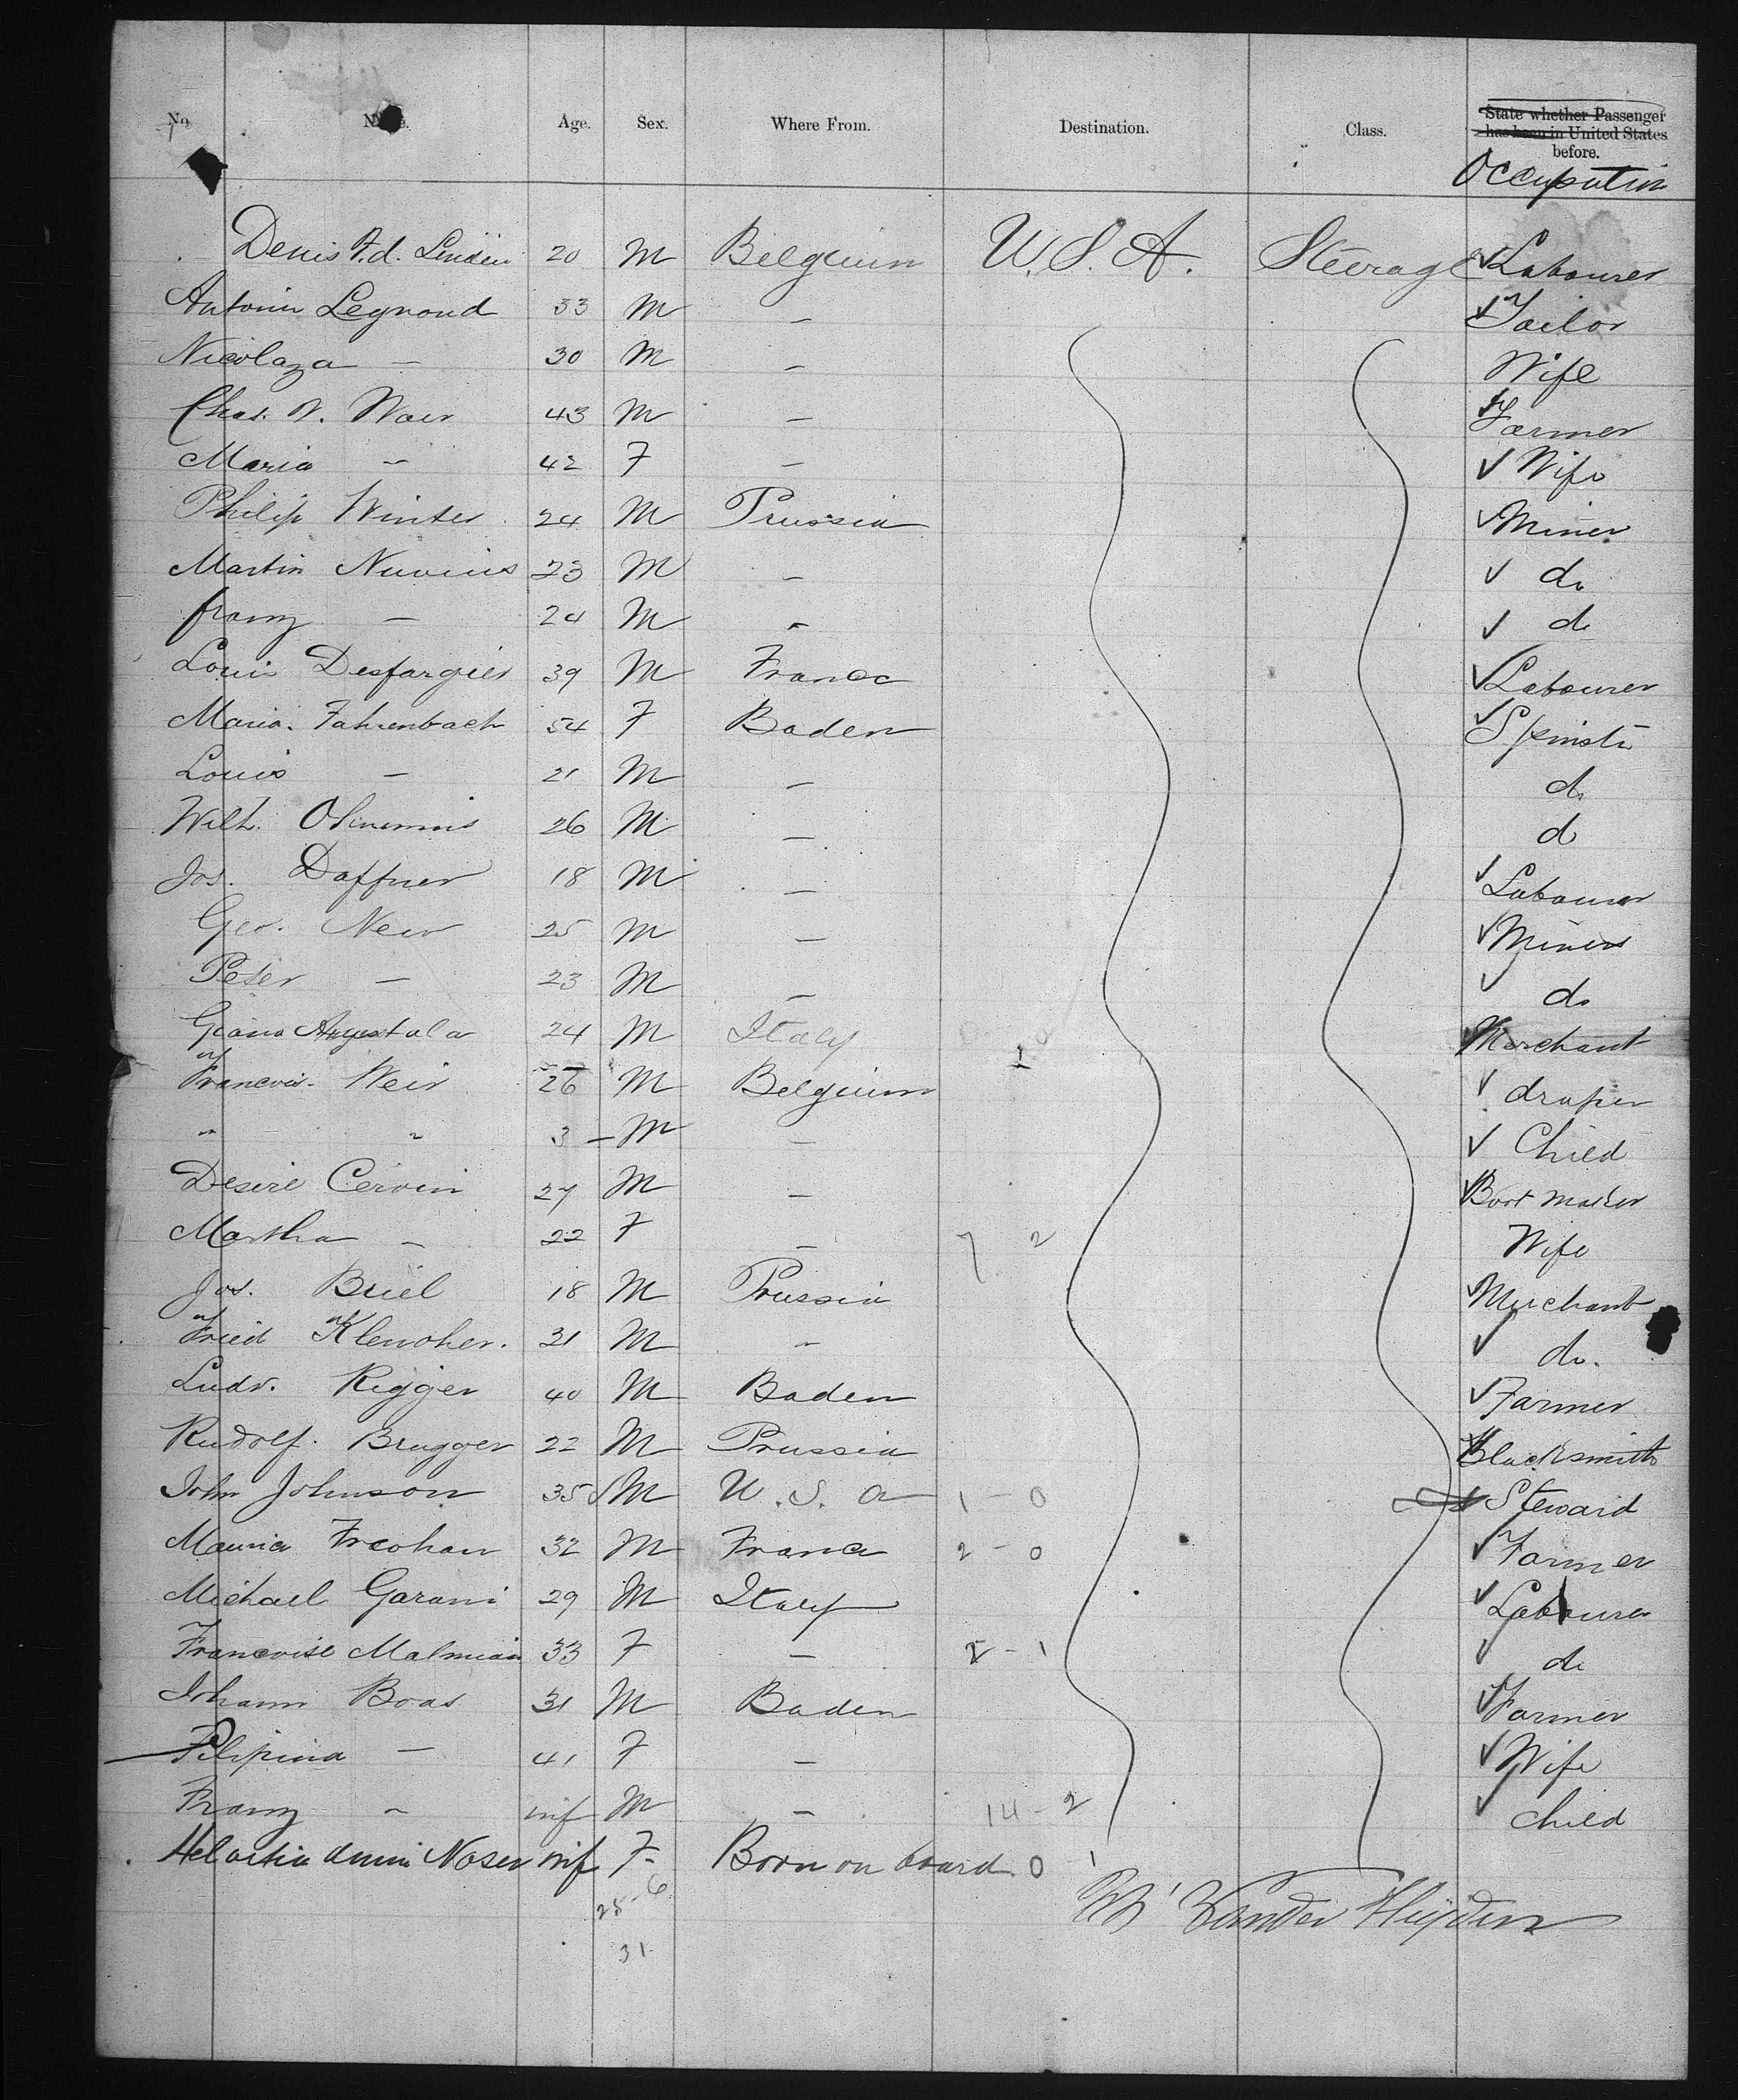 No. Name. Age. Sex. Where From. Destination. Class. State whether Passenger
has been in United States
before.
Occupation
Denis V.d. Linden 20 M Belgium U.S.A. Steerage Labourer
Antonin Legrond 33 M — Tailor
Nicolaza — 30 M — Wife
Chas. N. Wair 43 M — Farmer
Maria — 42 F — Wife
Philip Winter 24 M Prussia Miner
Martin Nuvens 23 M — do
franz — 24 M — do
Louis Desfargies 39 M France Labourer
Maria Fahrenbach 54 F Baden Spinster
Louis — 21 M — do
Wilh. 26 M — do
Jos. Daffner 18 M — Labourer
Geo. New 25 M — Miners
Peter — 23 M — do
24 M Italy Merchant
Francois Weir 26 M Belgium draper
" " 3 — M — Child
Desire Cervin 27 M — Boot maker
Martha — 22 F — 7 2 Wife
Jos. Briel 18 M Prussia Merchant
Fried 31 M " do.
Ludv. Rigger 40 M Baden Farmer
Rudolf. Brugger 22 M Prussia Blacksmith
John Johnson 35 M U.S.a 1 – 0 Steward
32 M France 2 – 0 Farmer
Michael Garani 29 M Italy Labourer
Francoise Malmian 33 F — 2 – 1 do
Johann Boas 31 M Baden Farmer
Filipina — 41 F — Wife
Franz " inf M — 14 – 2 child
Noser inf F Born on board 0 1
25 – 6
31
Vander Heyden